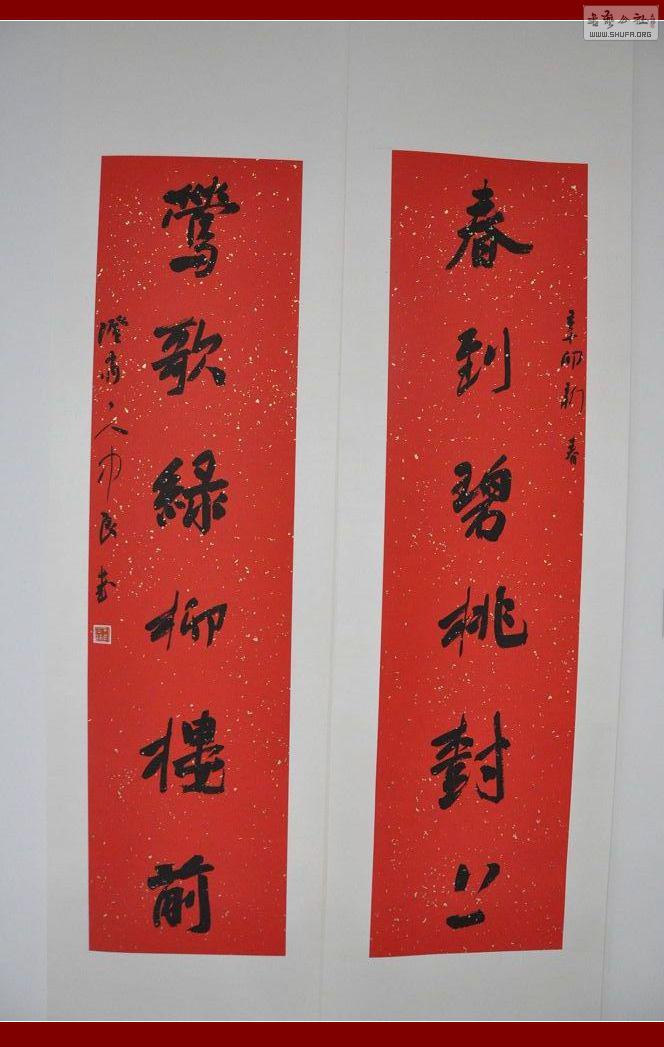 書藝公社
WWW.SHUFA.ORG
春到碧桃樹上
辛卯新春
鶯歌綠柳樓前
人
良書